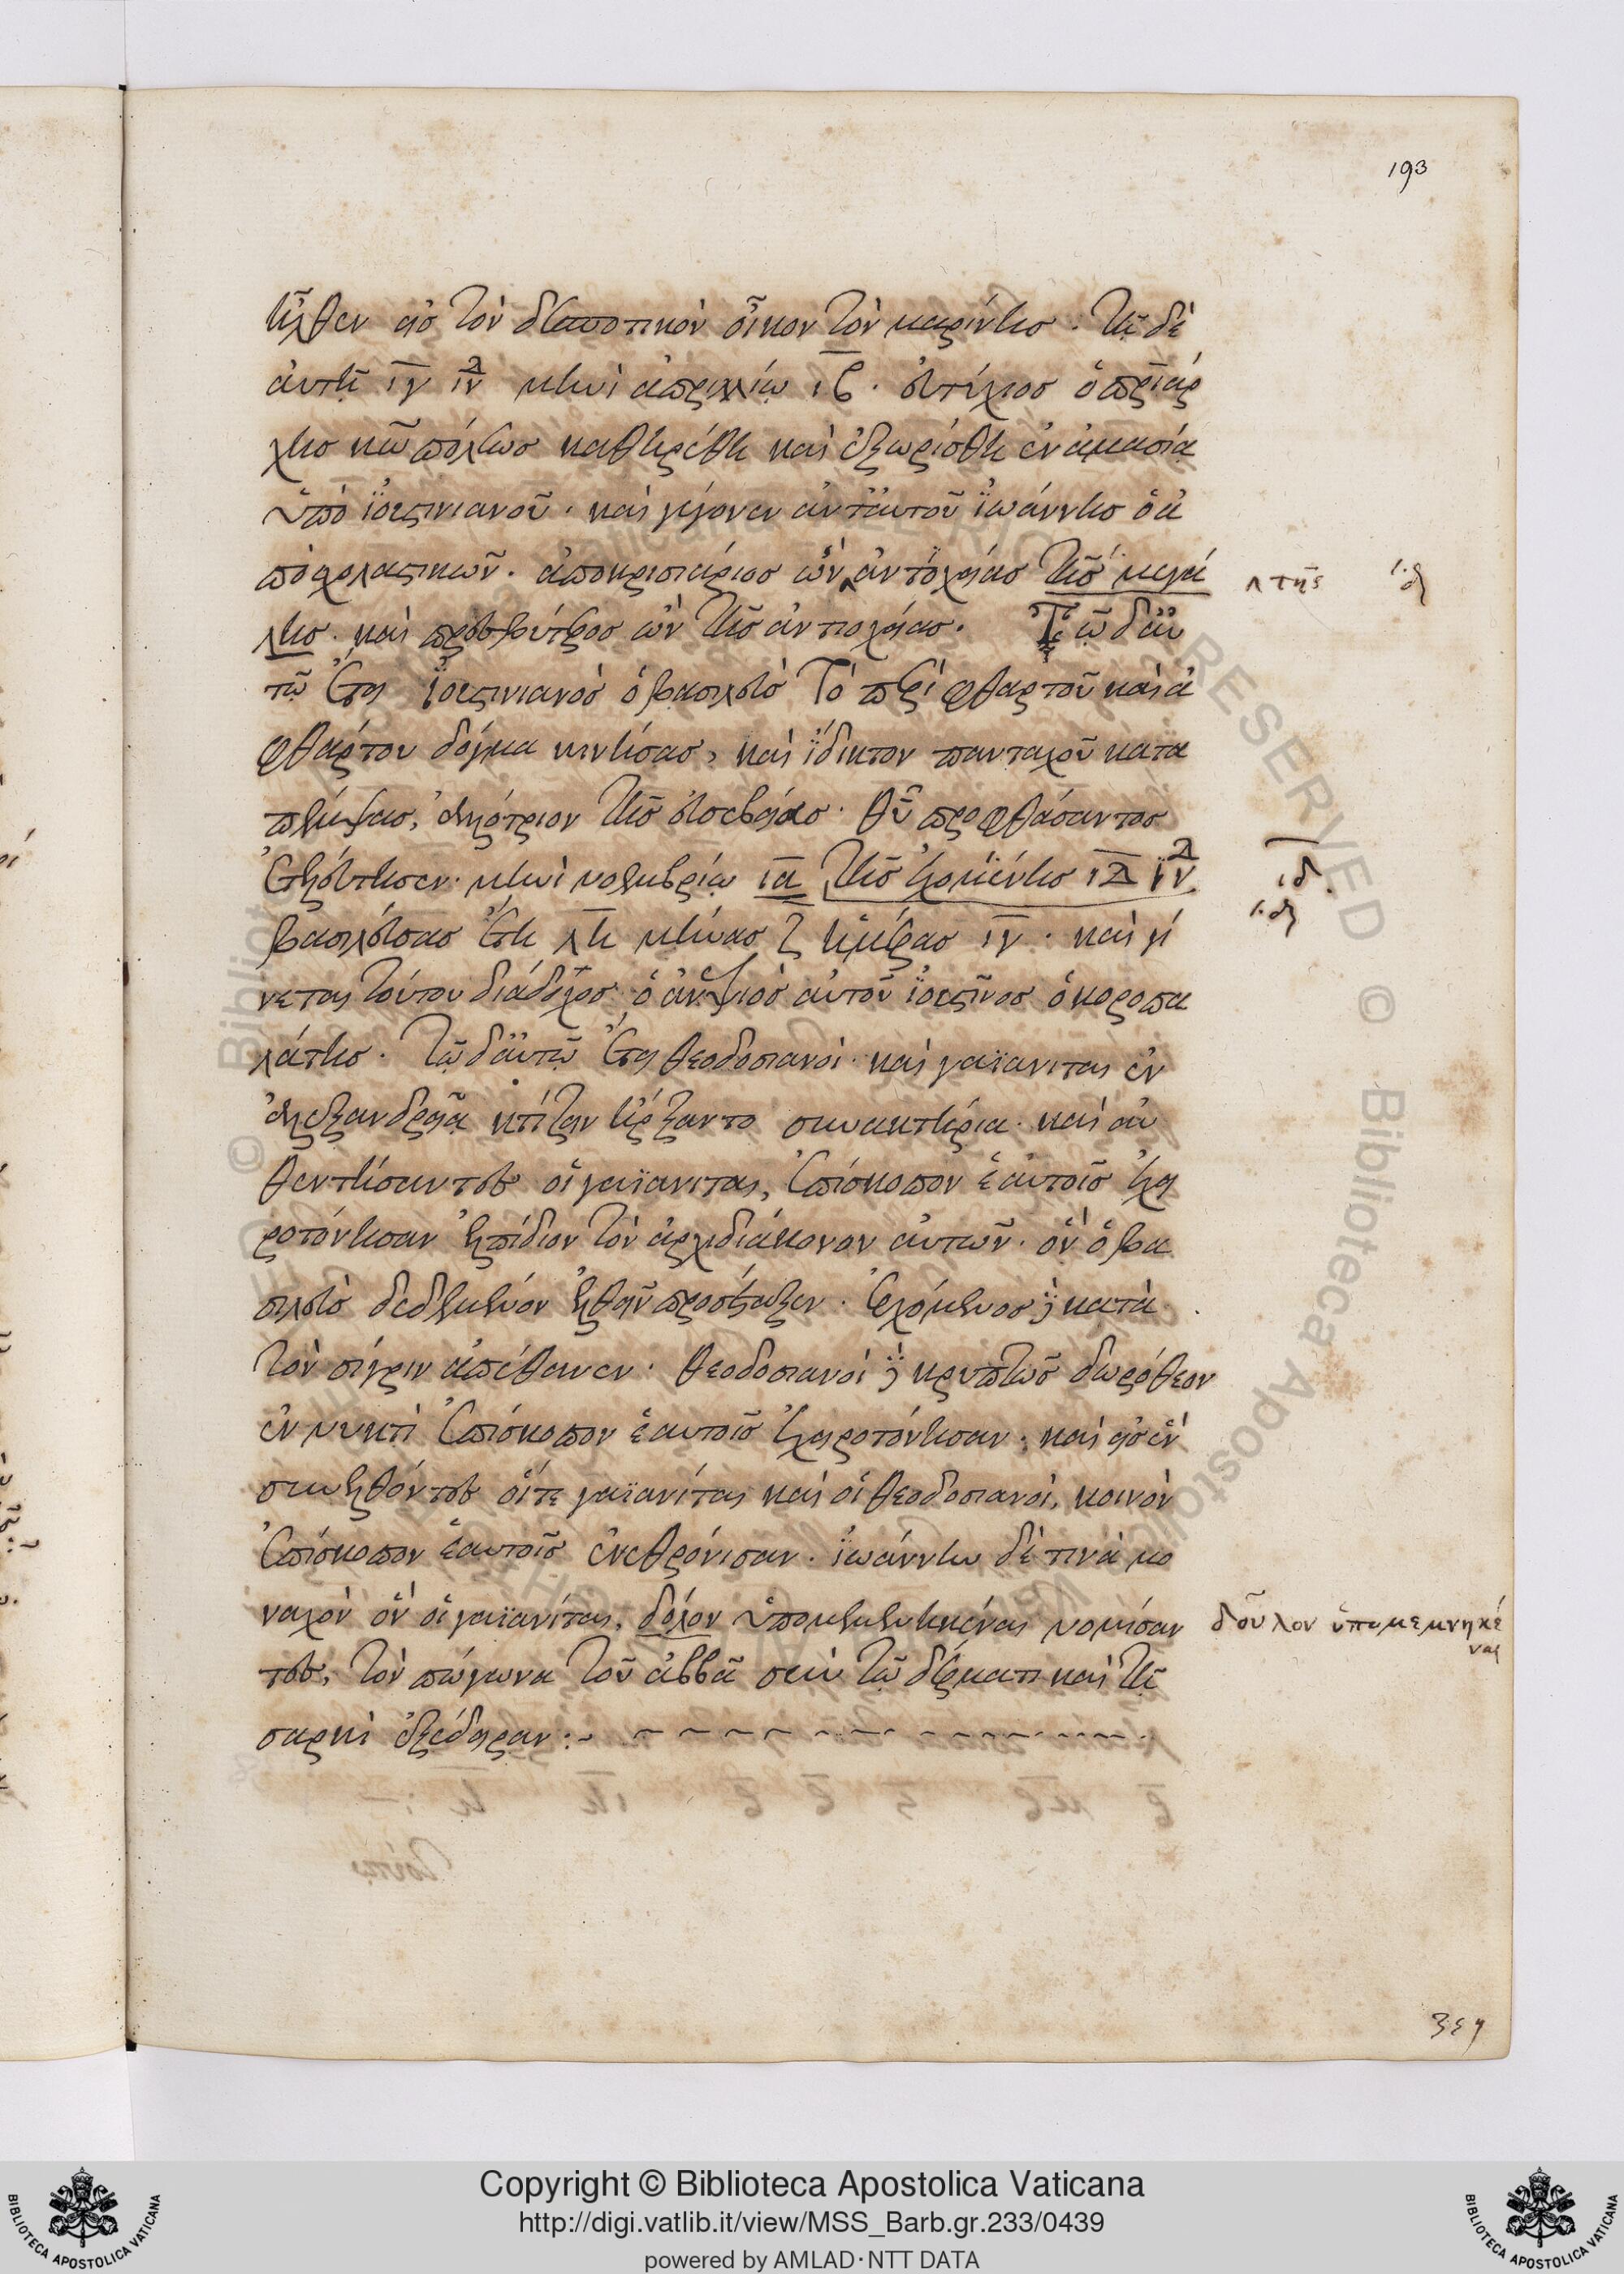 193
ῆλθεν εἰς τὸν δεσποτικὸν οἶκον τὸν μαρίνης · τῇ δὲ
αὐτῇ ιγ ἰν μηνὶ ἀπριλλίῳ ιβ · εὐτύχιος ὁ πριάρ
χης κω πόλεως καθηρέθη καὶ ἐξωρίσθη ἐν ἀμασίᾳ
ὑπὸ ἰουστινιανοῦ · καὶ γέγονεν ἀντ' αὐτοῦ ἰωάννης ὁ ἀ
πὸ σχολαστικῶν · ἀποκρισιάριος ὢν ἀντιοχείας τῆς μεγά
λης · καὶ πρεσβύτερος ὢν τῆς ἀντιοχείας · Τῷ δ' αὐ
τῷ ἔτει ἰουστινιανὸς ὁ βασιλεὺς τὸ περὶ φθαρτοῦ καὶ ἀ
φθάρτου δόγμα κινήσας, καὶ ἴδικτον πανταχοῦ κατα
πέμψας, ἀλλότριον τῆς εὐσεβείας · θῦ προφθάσαντος
ἐτελεύτησεν · μηνὶ νοεμβρίῳ ια τῆς ἐρχομένης ιδ ἰν
βασιλεύσας ἔτη λη μῆνας ζ ἡμέρας ιγ · καὶ γί
νεται τούτου διάδοχος ὁ ἀνεψιὸς αὐτοῦ ἰουστῖνος ὁ κοροπα
λάτης · τῷ δ' αὐτῷ ἔτει θεοδοσιανοὶ · καὶ γαϊανιται ἐν
ἀλεξανδρείᾳ κτίζειν ἤρξαντο συνακτήρια · καὶ αὐ
θεντήσαντες οἱ γαϊανιται, ἐπίσκοπον ἑαυτοῖς ἐχει
ροτόνησαν ἐλπίδιον τὸν ἀρχιδιάκονον αὐτῶν · ὃν ὁ βα
σιλεὺς δεδεμένον ἐλθεῖν προσέταξεν · ἐρχόμενος δὲ κατὰ
τὸν σίγριν ἀπέθανεν · θεοδοσιανοὶ δὲ κρυπτῶς δωρόθεον
ἐν νυκτὶ ἐπίσκοπον ἑαυτοῖς ἐχειροτόνησαν · καὶ εἰς ἓν
συνελθόντες οἵ τε γαϊανίται καὶ οἱ θεοδοσιανοὶ, κοινὸν
ἐπίσκοπον ἑαυτοῖς ἐνεθρόνισαν · ἰωάννην δὲ τινὰ μο
ναχὸν ὃν οἱ γαϊανίται, δόλον ὑπομεμενηκέναι νομίσαν
τες, τὸν πώγωνα τοῦ ἀββᾶ σὺν τῷ δέρματι καὶ τῇ
σαρκὶ ἐξέδειραν :~
τῆς
ιδ.
δοῦλον ὑπομεμνηκέ
ναι
Copyright © Biblioteca Apostolica Vaticana
http://digi.vatlib.it/view/MSS_Barb.gr.233/0439
powered by AMLAD·NTT DATA
BIBLIOTECA APOSTOLICA VATICANA
BIBLIOTECA APOSTOLICA VATICANA